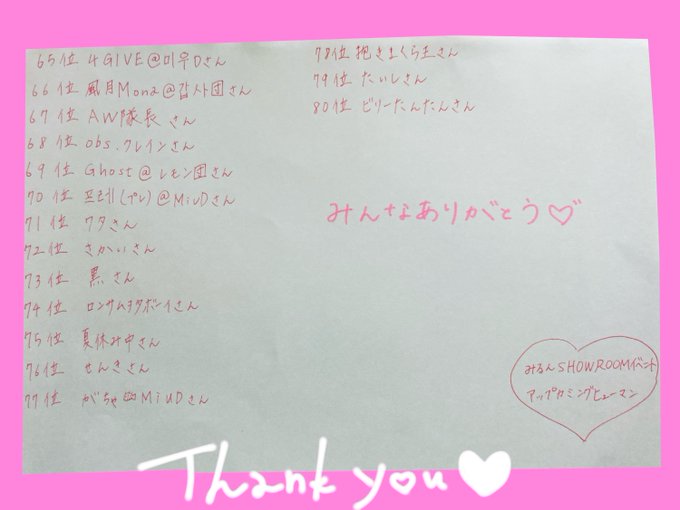 65位 4GIVE@미우Dさん
66位 風月Mona@감사団さん
67位 AW隊長さん
68位 obs.クレインさん
69位 Ghost@レモン団さん
70位 프레(プレ)@MiuDさん
71位 ワタさん
72位 さかいさん
73位 黒さん
74位 ロンサムヲタボーイさん
75位 夏休み中さん
76位 せんきさん
77位 がちゃ MiUDさん
78位 抱きまくら王さん
79位 たいしさん
80位 ビリーたんたんさん
みんなありがとう♡
みるんSHOWROOMイベント
アップカミングヒューマン
Thank you♥